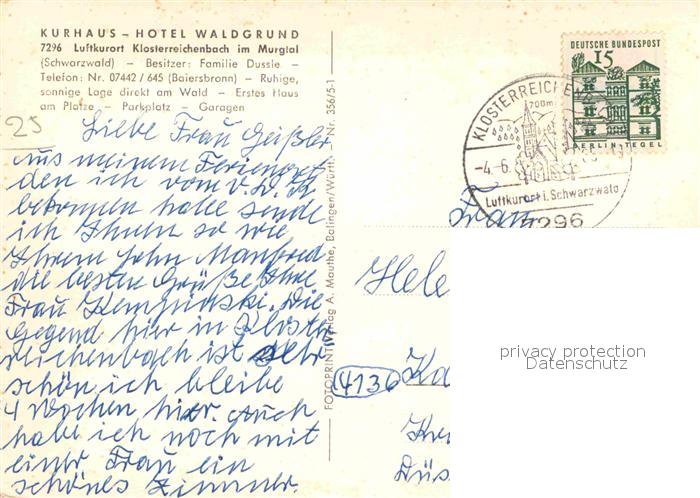 KURHAUS – HOTEL WALDGRUND
7296 Luftkurort Klosterreichenbach im Murgtal
(Schwarzwald) – Besitzer: Familie Dussle –
Telefon: Nr. 07442 / 645 (Baiersbronn) – Ruhige,
sonnige Lage direkt am Wald – Erstes Haus
am Platze – Parkplatz – Garagen
25
Liebe Frau Geißler
aus meinem Ferienort
den ich vom V.d.K
bekommen habe sende
ich Ihnen so wie
Ihrem Sohn Manfred
die besten Grüße Ihre
Frau Kempinski. Die
Gegend hier in Kloster
reichenbach ist sehr
schön ich bleibe
4 Wochen hier. Auch
habe ich noch mit
einer Frau ein
schönes Zimmer.
FOTOPRINT Verlag A. Mauthe, Balingen/Württ. Nr. 356/5-1
DEUTSCHE BUNDESPOST
15
BERLIN-TEGEL
KLOSTERREICHEN
700m
-4.6.
Luftkurort i. Schwarzwald
7296
Frau
Hele
4136 Ka
Kr
Düs
privacy protection
Datenschutz